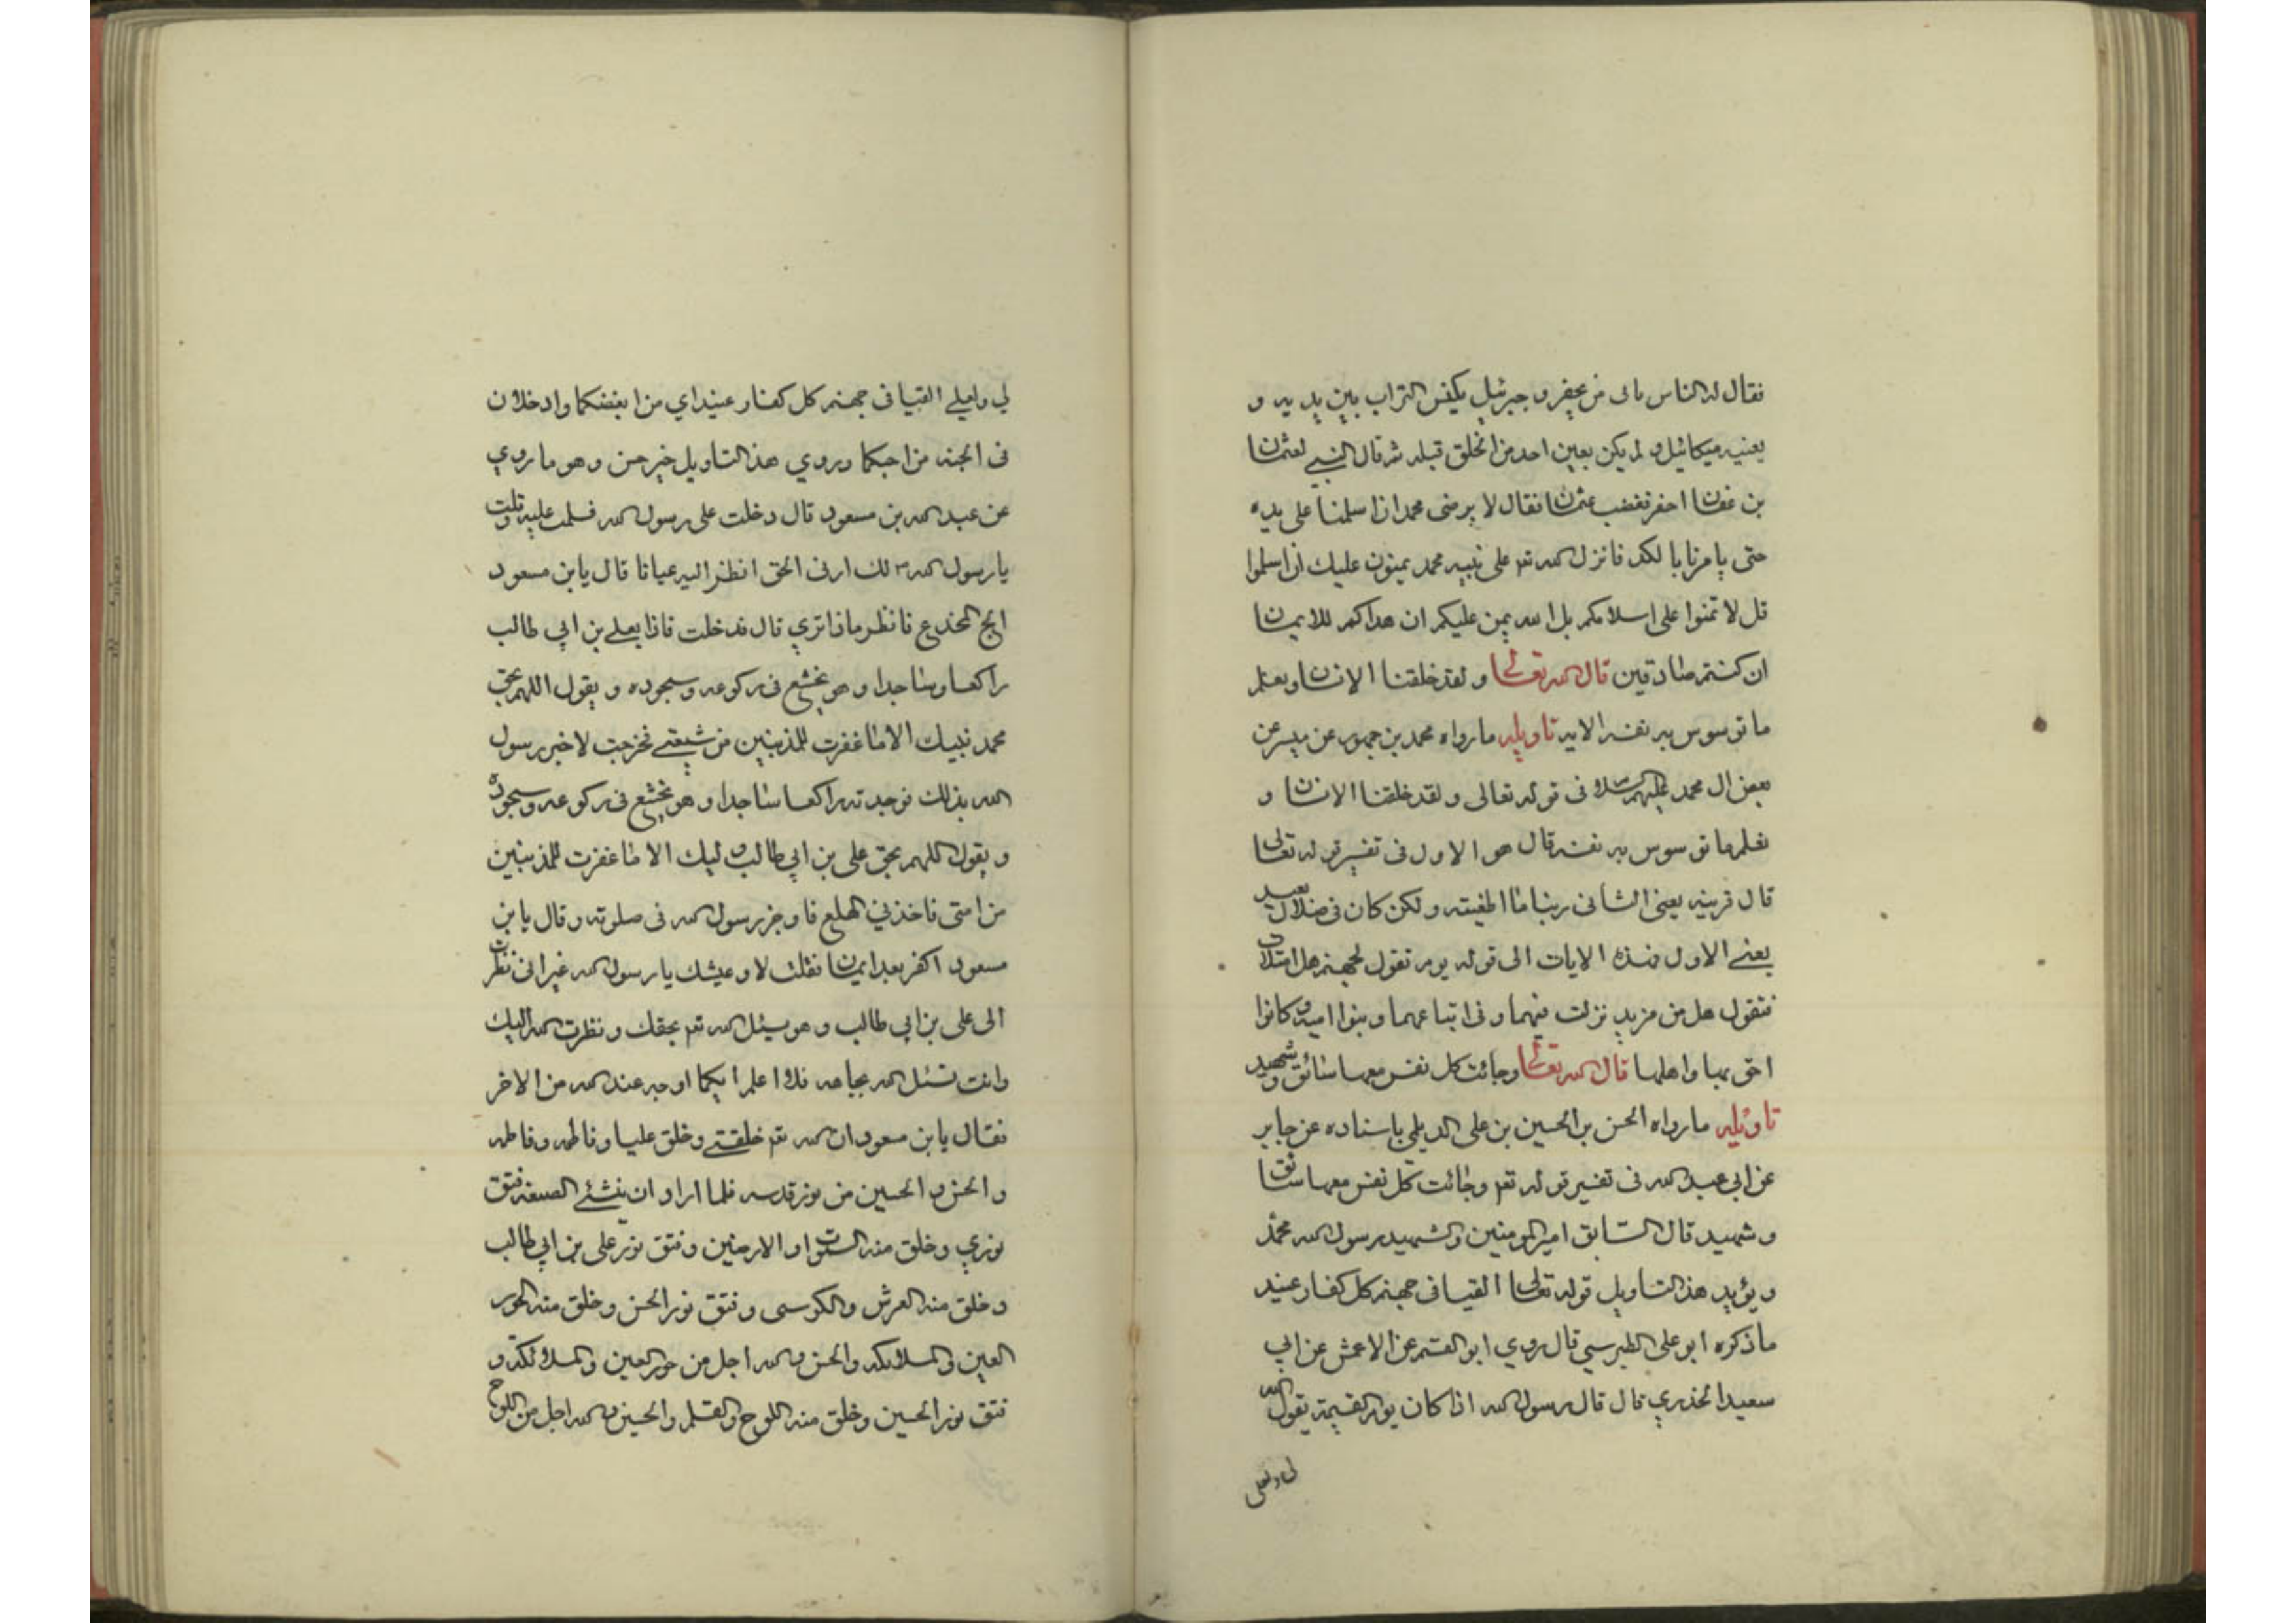 فقال له الناس مالى من يحفر و جبرئيل يكنس التراب بين يديه و
يعينه ميكائيل و لم يكن يعين احد من الخلق قبله ثم قال النبي لعثمان
بن عفان احفر فغضب عثمان فقال لا يرضى محمد ان اسلمنا على يده
حتى يامرنا بالكد فانزل الله تع على نبيه محمد يمنون عليك ان اسلموا
قل لا تمنوا على اسلامكم بل الله يمن عليكم ان هداكم للايمان
ان كنتم صادقين قال الله تعالى و لقد خلقنا الانسان و نعلم
ما توسوس به نفسه الايه تاويله ما رواه محمد بن جمهور عن ميسر عن
بعض ال محمد عليهم السلام فى قوله تعالى و لقد خلقنا الانسان و
نعلم ما توسوس به نفسه قال هو الاول فى تفسير قوله تعالى
قال قرينه يعنى الثانى ربنا ما اطغيته و لكن كان فى ضلال بعيد
يعنى الاول و هذه الايات الى قوله يوم نقول لجهنم هل امتلات
فتقول هل من مزيد نزلت فيهما و فى اتباعهما و بنوا اميه و كانوا
احق بها و اهلها قال الله تعالى وجائت كل نفس معها سائق و شهيد
تاويله ما رواه الحسن بن الحسين بن على الديلمي باسناده عن جابر
عن ابي عبد الله فى تفسير قوله تع و جائت كل نفس معها سائق
و شهيد قال السايق امير المومنين و الشهيد رسول الله محمد
و يؤيد هذا التاويل قوله تعالى القيا فى جهنم كل كفار عنيد
ما ذكره ابو على الطبرسي قال روي ابو القسم عن الاعمش عن ابي
سعيد الخذري قال قال رسول الله اذا كان يوم القيمة يقول الله
لى و لعلى
لي و لعلي القيا فى جهنم كل كفار عنيد اي من ابغضكما و ادخلا ن
فى الجنه من احبكما و روي هذا التاويل خبر حسن و هو ما روي
عن عبد الله بن مسعود قال دخلت على رسول الله فسلمت عليه و قلت
يا رسول الله ارنى الحق انظر اليه عيانا قال يا بن مسعود
الج المخدع فانظر ماذا تري قال فدخلت فاذا بعلي بن ابي طالب
راكعا و ساجدا و هو يخشع فى ركوعه و سجوده و يقول اللهم بحق
محمد نبيك الا ما غفرت للمذنبين من شيعتي فخرجت لاخبر رسول
الله بذلك فوجدته راكعا ساجدا و هو يخشع فى ركوعه و سجوده
و يقول اللهم بحق على بن ابي طالب وليك الا ما غفرت للمذنبين
من امتى فاخذني الهلع فاوجز رسول الله فى صلوته و قال يا بن
مسعود اكفر بعد ايمان فقلت لا و عيشك يا رسول الله غير انى نظرت
الى على بن ابي طالب و هو يسئل الله تع بحقك و نظرت اليك
وانت تسئل الله بجاهه فلا اعلم ايكما اوجه عند الله من الاخر
فقال يا بن مسعود ان الله تع خلقني و خلق عليا و فاطمه و فاطمه
و الحسن و الحسين من نور قدسه فلما اراد ان ينشئ الصنعه فتق
نوري و خلق منه السموات و الارضين و فتق نور على بن ابي طالب
و خلق منه العرش و الكرسى و فتق نور الحسن و خلق منه الحور
العين و الملائكه و الحسن و الله اجل من حور العين و الملائكة و
فتق نور الحسين و خلق منه اللوح و القلم و الحسين و الله اجل من اللوح